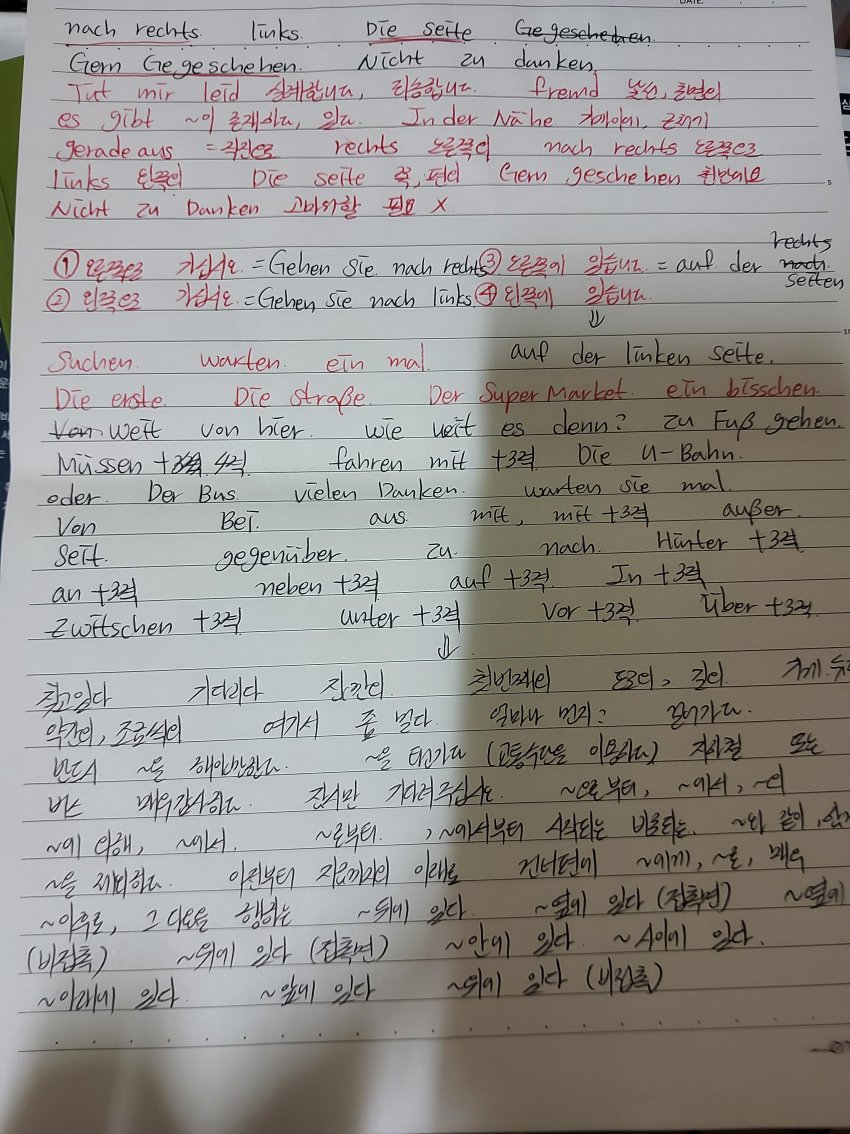 DATE.
nach rechts. links. Die seite Gegeschehen.
Gern Gegeschehen. Nicht zu danken,
Tut mir leid 실례합니다, 죄송합니다. fremd 낯선,
es gibt ~이 존재하다, 있다. In der Nähe 가까이에, 근처에
gerade aus = 직진으로 rechts 오른쪽의 nach rechts 오른쪽으로
links 왼쪽의 Die seite 쪽, 편의 Gern geschehen 천만에요
Nicht zu Danken 고마워할 필요 X
rechts
① 오른쪽으로 가십시오. = Gehen Sie nach rechts ③ 오른쪽에 있습니다. = auf der nach.
seiten
② 왼쪽으로 가십시오. = Gehen Sie nach links. ④ 왼쪽에 있습니다.
⇓
Suchen. warten. ein mal. auf der linken seite.
Die erste. Die straße. Der Super Market. ein bisschen.
Von weit von hier. wie weit es denn? zu Fuß gehen.
Müssen + 4격 fahren mit +3격 Die U-Bahn.
oder. Der Bus. vielen Danken. warten sie mal.
Von Bei. aus. mit, mit +3격 außer.
Seit. gegenüber. zu. nach. Hinter +3격
an +3격 neben +3격 auf +3격. In +3격
Zwitschen +3격 unter +3격 Vor +3격 Über +3격
⇓
찾고있다 기다리다 잠깐의. 첫번째의 도로의, 길의. 가게.
약간의, 조금씩의 여기서 좀 멀다. 얼마나 먼지? 걸어가다.
반드시 ~을 해야만한다. ~을 타고가다 (교통수단을 이용하다) 지하철 또는
버스 매우감사하다. 잠시만 기다려주십시오. ~으로부터, ~에서, ~의
~에 의해, ~에서. ~로부터. , ~에서부터 시작되는 비롯되는. ~와 같이,
~을 제외하고. 이전부터 지금까지의 이래로 건너편에 ~에게, ~로, 매우
~이후로, 그 다음을 행하는 ~뒤에 있다. ~옆에 있다 (접촉면) ~옆에
(비접촉) ~위에 있다 (접촉면) ~안에 있다. ~사이에 있다.
~아래에 있다. ~앞에 있다 ~위에 있다 (비접촉)